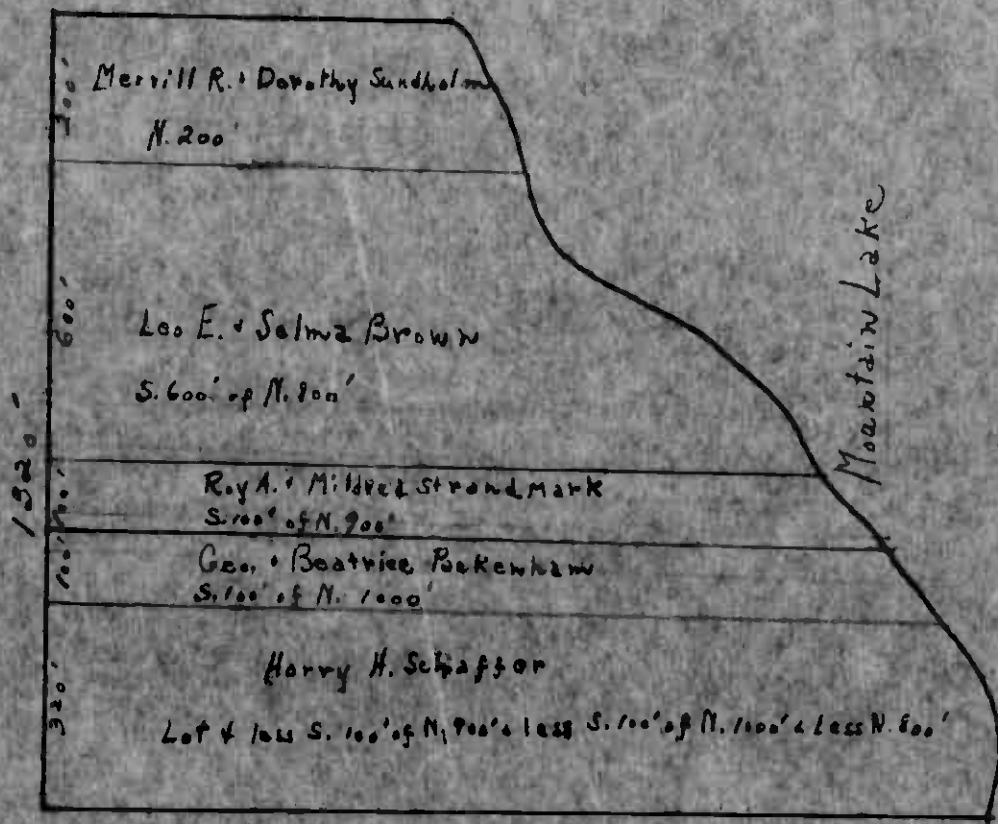 Merrill R. & Dorothy Sundholm
N. 200'
200'
Leo E. & Selma Brown
S. 600' of N. 800'
600'
Mountain Lake
1320'
Roy A. & Mildred Strandmark
S. 100' of N. 900'
100'
Geo. & Beatrice Pakenham
S. 100' of N. 1000'
100'
Harry H. Schaffer
320'
Lot 4 less S. 100' of N. 900' & less S. 100' of N. 1000' & Less N. 800'